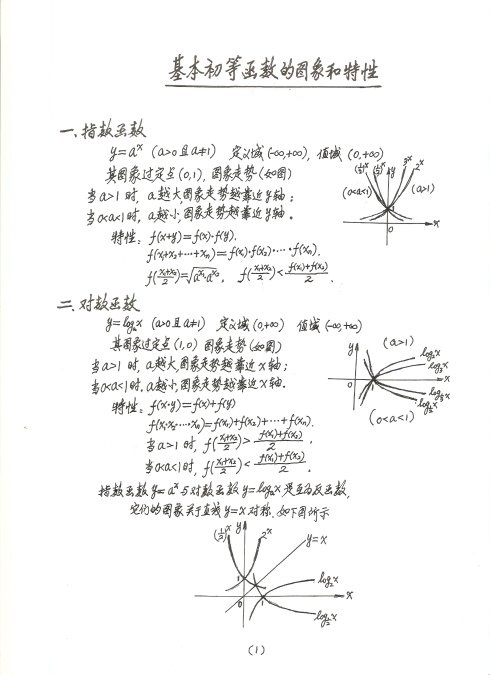 基本初等函数的图象和特性
一、指数函数
y=aˣ (a>0且a≠1) 定义域(-∞,+∞), 值域(0,+∞)
其图象过定点(0,1), 图象走势(如图)
当a>1时, a越大,图象走势越靠近y轴;
当0<a<1时, a越小,图象走势越靠近y轴。
特性: f(x+y)=f(x)·f(y).
f(x₁+x₂+…+xₙ)=f(x₁)·f(x₂)·…·f(xₙ).
f((x₁+x₂)/2)=√(aˣ¹·aˣ²), f((x₁+x₂)/2)<(f(x₁)+f(x₂))/2.
(1/3)ˣ (1/2)ˣ y 3ˣ 2ˣ
(0<a<1) (a>1)
1
0 x
二、对数函数
y=logₐx (a>0且a≠1) 定义域(0,+∞) 值域(-∞,+∞)
其图象过定点(1,0) 图象走势(如图)
当a>1时, a越大,图象走势越靠近x轴;
当0<a<1时, a越小,图象走势越靠近x轴。
特性: f(x·y)=f(x)+f(y)
f(x₁·x₂·…·xₙ)=f(x₁)+f(x₂)+…+f(xₙ).
当a>1时, f((x₁+x₂)/2)>(f(x₁)+f(x₂))/2,
当0<a<1时, f((x₁+x₂)/2)<(f(x₁)+f(x₂))/2.
y (a>1)
log₂x
log₃x
0 1 x
log₁/₃x
log₁/₂x
(0<a<1)
指数函数y=aˣ与对数函数y=logₐx是互为反函数,
它们的图象关于直线y=x对称, 如下图所示
(1/2)ˣ y 2ˣ y=x
1 log₂x
0 1 x
log₁/₂x
(1)